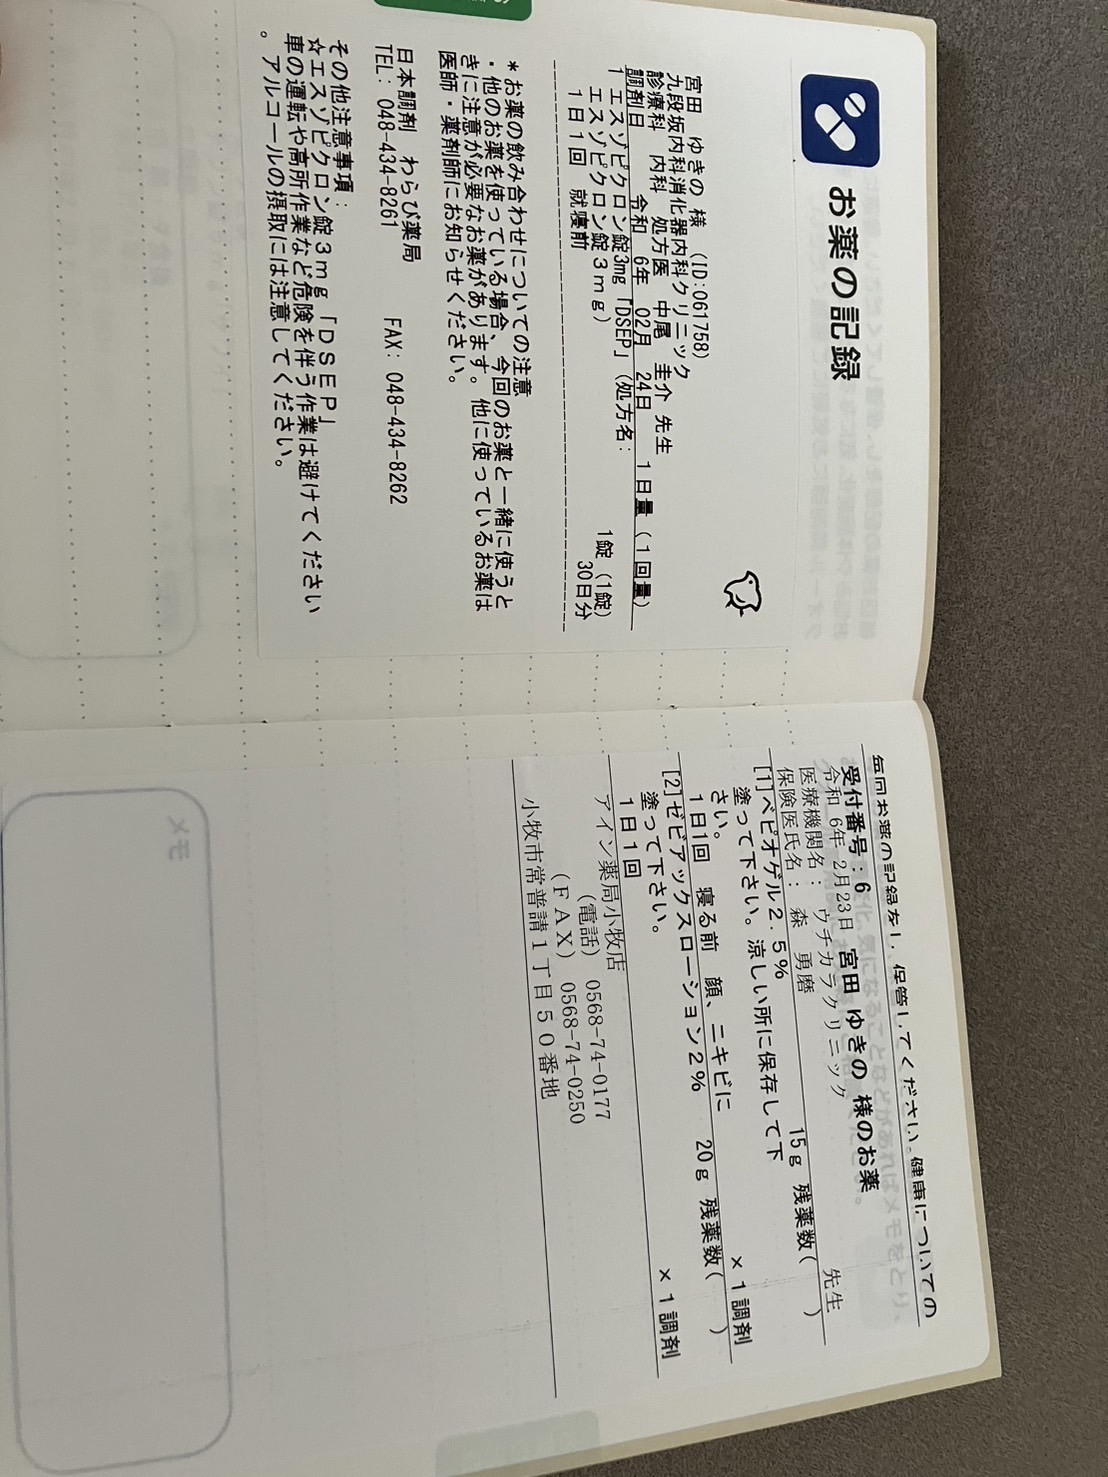 お薬の記録
宮田 ゆきの 様 (ID:061758)
九段坂内科消化器内科クリニック
診療科 内科 処方医 中尾 圭介 先生
調剤日 令和 6年 02月 24日 1日量 (1回量)
1 エスゾピクロン錠3mg「DSEP」(処方名:
エスゾピクロン錠3mg) 1錠 (1錠)
1日1回 就寝前 30日分
*お薬の飲み合わせについての注意
・他のお薬を使っている場合、今回のお薬と一緒に使うと
きに注意が必要なお薬があります。他に使っているお薬は
医師・薬剤師にお知らせください。
日本調剤 わらび薬局
TEL: 048-434-8261 FAX: 048-434-8262
その他注意事項:
☆エスゾピクロン錠3mg「DSEP」
車の運転や高所作業など危険を伴う作業は避けてください
。アルコールの摂取には注意してください。
毎回お薬の記録をし、保管してください。健康についての
受付番号:6 宮田 ゆきの 様のお薬
令和 6年 2月23日
医療機関名: ウチカラクリニック
保険医氏名: 森 勇磨 先生
[1]ベピオゲル2.5% 15g 残薬数( )
塗って下さい。涼しい所に保存して下
さい。
1日1回 寝る前 顔、ニキビに ×1調剤
[2]ゼビアックスローション2% 20g 残薬数( )
塗って下さい。
1日1回 ×1調剤
アイン薬局小牧店
(電話) 0568-74-0177
(FAX) 0568-74-0250
小牧市常普請1丁目50番地
メモ